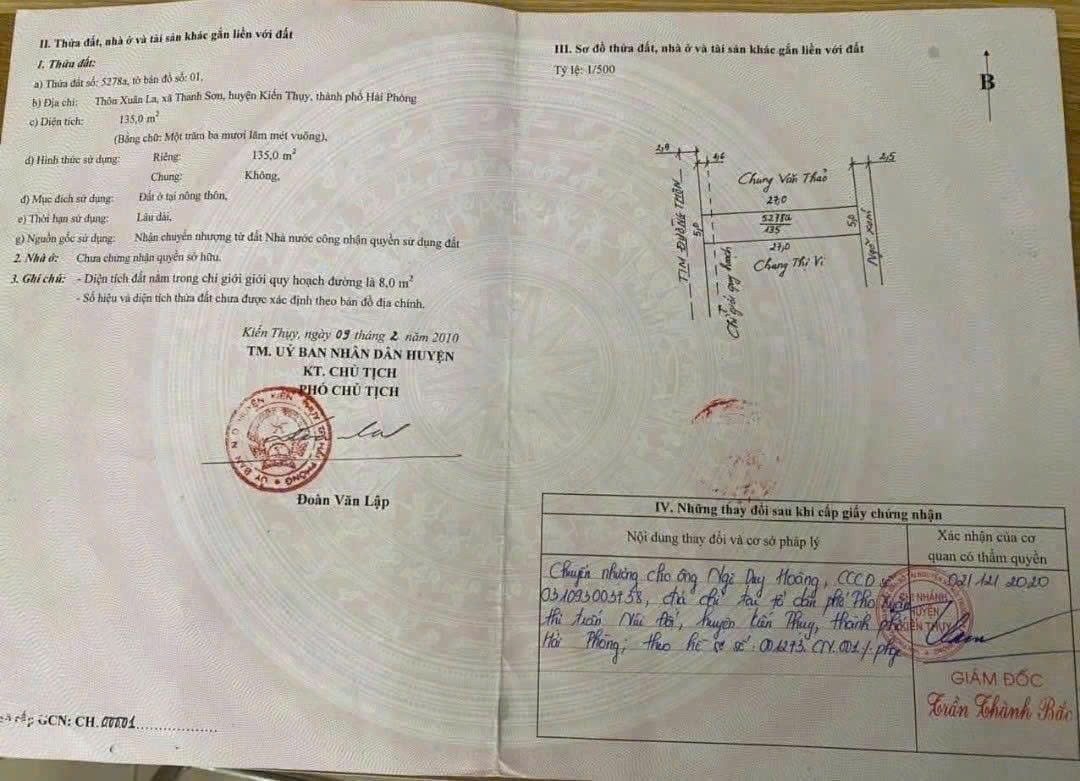 II. Thửa đất, nhà ở và tài sản khác gắn liền với đất
1. Thửa đất:
a) Thửa đất số: 5278a, tờ bản đồ số: 01,
b) Địa chỉ: Thôn Xuân La, xã Thanh Sơn, huyện Kiến Thụy, thành phố Hải Phòng
c) Diện tích: 135,0 m²
(Bằng chữ: Một trăm ba mươi lăm mét vuông),
d) Hình thức sử dụng: Riêng: 135,0 m²
Chung: Không,
đ) Mục đích sử dụng: Đất ở tại nông thôn,
e) Thời hạn sử dụng: Lâu dài,
g) Nguồn gốc sử dụng: Nhận chuyển nhượng từ đất Nhà nước công nhận quyền sử dụng đất
2. Nhà ở: Chưa chứng nhận quyền sở hữu.
3. Ghi chú: - Diện tích đất nằm trong chỉ giới giới quy hoạch đường là 8,0 m²
- Số hiệu và diện tích thửa đất chưa được xác định theo bản đồ địa chính.
Kiến Thụy, ngày 09 tháng 2 năm 2010
TM. UỶ BAN NHÂN DÂN HUYỆN
KT. CHỦ TỊCH
PHÓ CHỦ TỊCH
Đoàn Văn Lập
GCN: CH.00001
III. Sơ đồ thửa đất, nhà ở và tài sản khác gắn liền với đất
Tỷ lệ: 1/500
B
1,6
2,5
Chung Văn Thảo
27,0
TIM ĐƯỜNG THÔN
5,0
5278a
135
5,0
Ngõ xóm
27,0
Chung Thị Vi
Chỉ giới quy hoạch
IV. Những thay đổi sau khi cấp giấy chứng nhận
Nội dung thay đổi và cơ sở pháp lý
Xác nhận của cơ quan có thẩm quyền
Chuyển nhượng cho ông Ngô Duy Hoàng, CCCD
địa chỉ tại tổ dân phố
thị trấn Núi Đối, huyện Kiến Thụy, thành phố
Hải Phòng; theo hồ sơ số: 001273.CN.001
02/12/2020
CHI NHÁNH
HUYỆN
KIẾN THỤY
GIÁM ĐỐC
Trần Thành Bắc